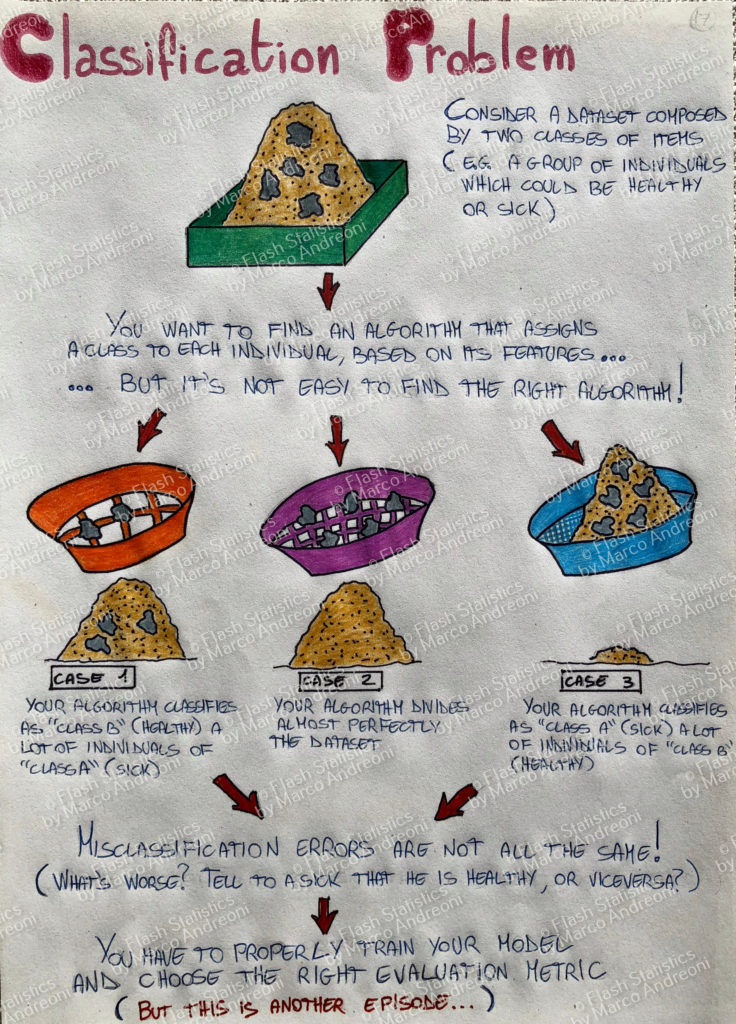 Classification Problem
17
CONSIDER A DATASET COMPOSED
BY TWO CLASSES OF ITEMS
(E.G. A GROUP OF INDIVIDUALS
WHICH COULD BE HEALTHY
OR SICK)
YOU WANT TO FIND AN ALGORITHM THAT ASSIGNS
A CLASS TO EACH INDIVIDUAL, BASED ON ITS FEATURES...
... BUT IT'S NOT EASY TO FIND THE RIGHT ALGORITHM!
CASE 1
YOUR ALGORITHM CLASSIFIES
AS "CLASS B" (HEALTHY) A
LOT OF INDIVIDUALS OF
"CLASS A" (SICK)
CASE 2
YOUR ALGORITHM DIVIDES
ALMOST PERFECTLY
THE DATASET
CASE 3
YOUR ALGORITHM CLASSIFIES
AS "CLASS A" (SICK) A LOT
OF INDIVIDUALS OF "CLASS B"
(HEALTHY)
MISCLASSIFICATION ERRORS ARE NOT ALL THE SAME!
(WHAT'S WORSE? TELL TO A SICK THAT HE IS HEALTHY, OR VICEVERSA?)
YOU HAVE TO PROPERLY TRAIN YOUR MODEL
AND CHOOSE THE RIGHT EVALUATION METRIC
(BUT THIS IS ANOTHER EPISODE...)
© Flash Statistics
by Marco Andreoni